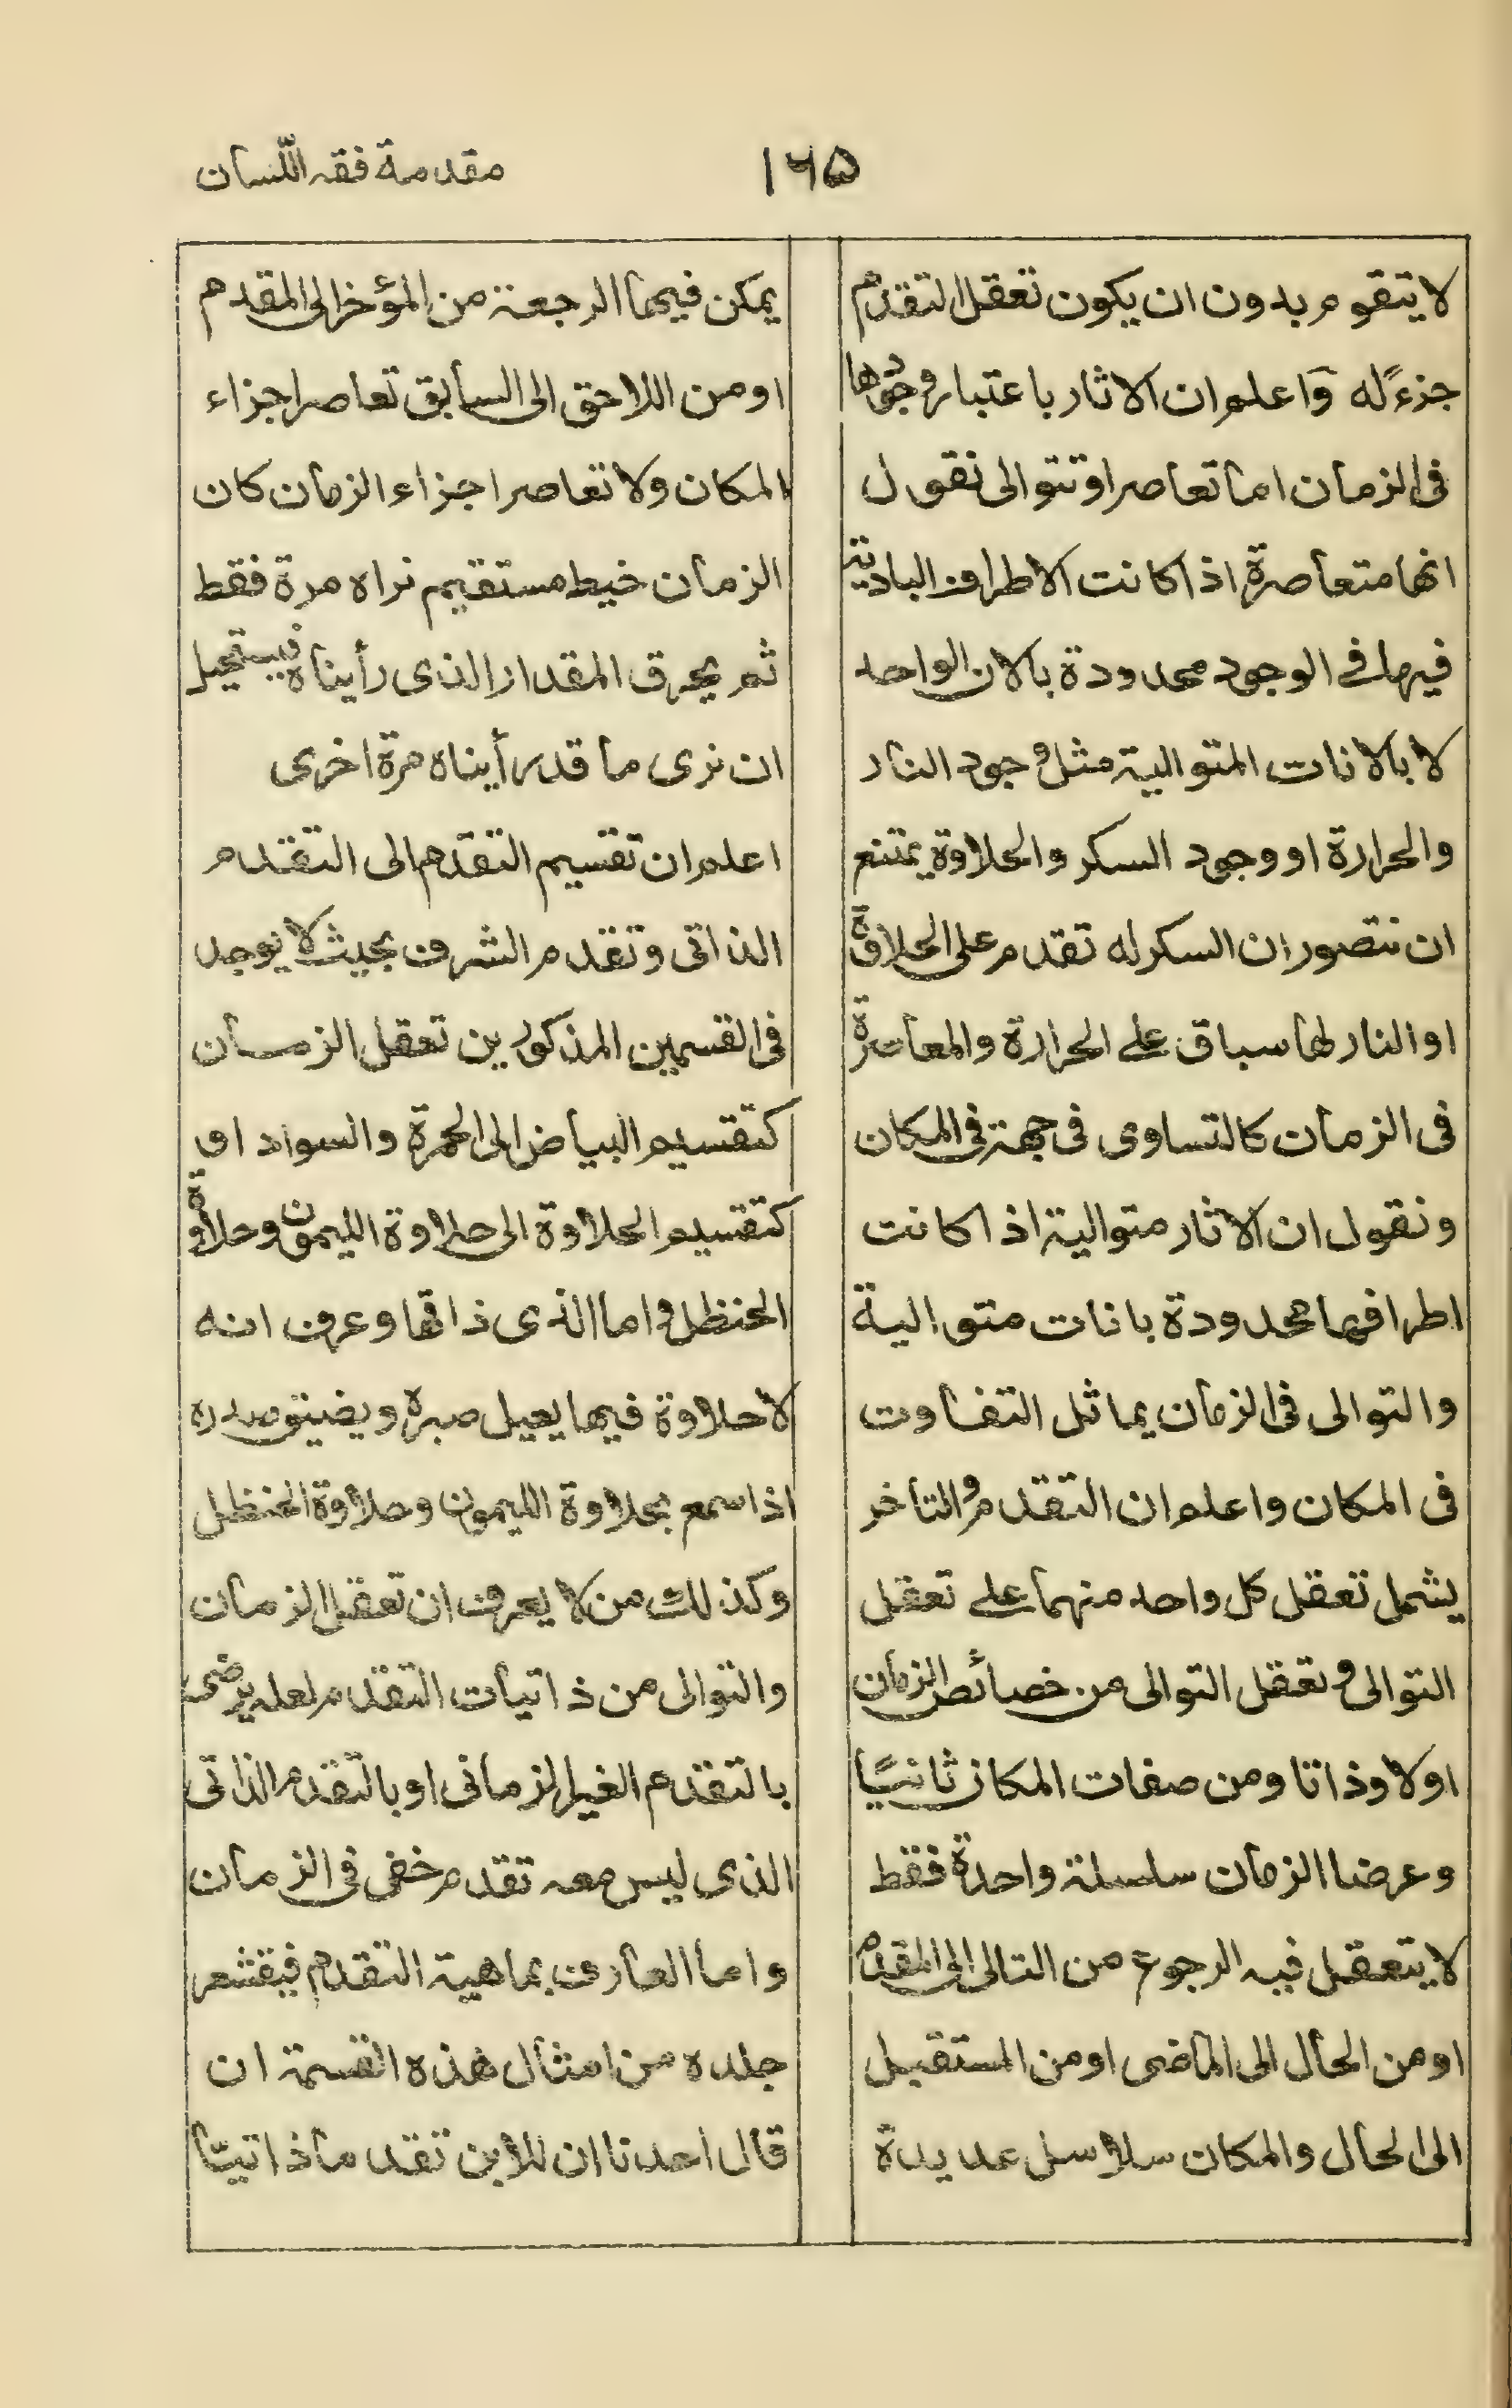 مقدمة فقه اللّسان
١٦٥
لا يتقوم بدون ان يكون تعقل التقدّم
جزءً له وَاعلم ان الاثار باعتبار وجودها
فى الزمان اما تعاصر او تتوالى نقول
انها متعاصرة اذا كانت الاطراف البادية
فيها فى الوجود محدودة بالان الواحد
لا بالانات المتوالية مثل وجود النار
والحرارة او وجود السكر والحلاوة يمتنع
ان نتصور ان السكر له تقدم على الحلاوة
او النار لها سباق على الحرارة والمعاصرة
فى الزمان كالتساوى فى جهة فى المكان
ونقول ان الاثار متوالية اذا كانت
اطرافها محدودة بانات متوالية
والتوالى فى الزمان يماثل التفاوت
فى المكان واعلم ان التقدم والتأخر
يشمل تعقل كل واحد منهما على تعقل
التوالى وتعقل التوالى من خصائص الزمان
اولا وذاتا ومن صفات المكان ثانيًا
وعرضا الزمان سلسلة واحدة فقط
لا يتعقل فيه الرجوع من التالى الى المقدم
او من الحال الى الماضى او من المستقبل
الى الحال والمكان سلاسل عديدة
يمكن فيها الرجعة من المؤخر الى المقدم
او من اللاحق الى السابق تعاصر اجزاء
المكان ولا تعاصر اجزاء الزمان كان
الزمان خيط مستقيم نراه مرة فقط
ثم يحرق المقدار الذى رأيناه فيستحيل
ان نرى ما قد رأيناه مرة اخرى
اعلم ان تقسيم التقدم الى التقدم
الذاتى وتقدم الشرف بحيث لا يوجد
فى القسمين المذكورين تعقل الزمان
كتقسيم البياض الى الحمرة والسواد او
كتقسيم الحلاوة الى حلاوة الليمون وحلاوة
الحنظل واما الذى ذاقها وعرف انه
لا حلاوة فيها يعيل صبره ويضيق صدره
اذا سمع بحلاوة الليمون وحلاوة الحنظل
وكذلك من لا يعرف ان تعقل الزمان
والتوالى من ذاتيات التقدم لعله يرضى
بالتقدم الغير الزمانى او بالتقدم الذاتى
الذى ليس معه تقدم خفى فى الزمان
واما العارف بماهية التقدم فيقشعر
جلده من امثال هذه القسمة ان
قال احدنا ان للأبن تقدما ذاتيّا